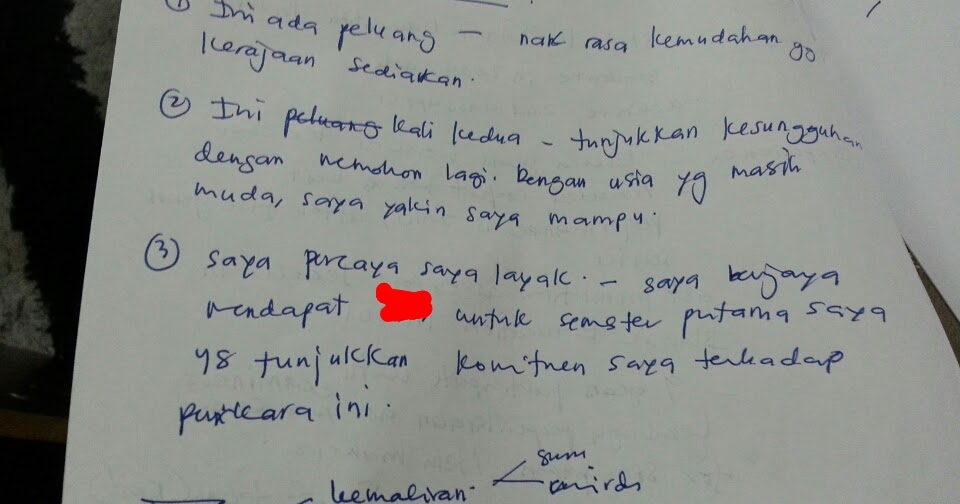 ① Ini ada peluang – nak rasa kemudahan yg
kerajaan sediakan.
② Ini peluang kali kedua – tunjukkan kesungguhan
dengan memohon lagi. Dengan usia yg masih
muda, saya yakin saya mampu.
③ saya percaya saya layak. – saya berjaya
mendapat untuk semster pertama saya
yg tunjukkan komitmen saya terhadap
perkara ini.
sum
- kemahiran.